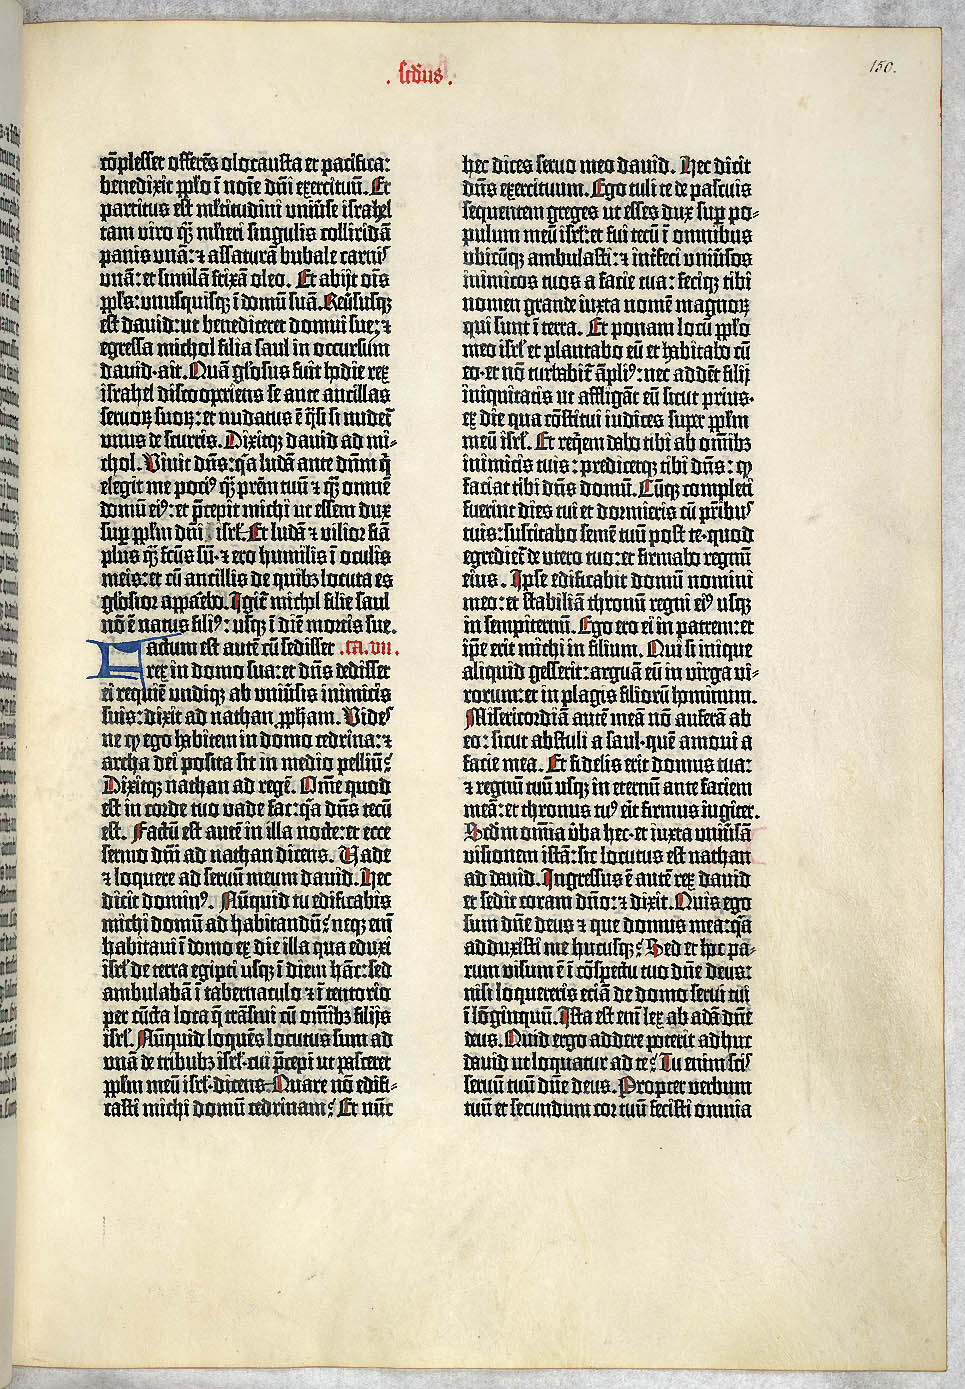 . scd̄us .
150.
cōplesset offerēs olocausta et pacifica:
benedixit pplo ī noīe dn̄i exercituū. Et
partitus est m̄ltitudini uniūse israhel
tam viro qȝ m̄lieri singulis colliridā
panis unā: ⁊ assaturā bubale carnis
unā: et similā frixā oleo. Et abijt oīs
ppls: unusquisqȝ ī domū suā. Reūsusqȝ
est david: ut benediceret domui sue; ⁊
egressa michol filia saul in occursum
david · ait. Quā glosus fuit hodie rex
israhel discooperiens se ante ancillas
servoꝝ suoꝝ: et nudatus ē q̄si si nudet̄
unus de scurris. Dixitqȝ david ad mi-
chol. Vivit dn̄s: qā ludā ante dn̄m q̄
elegit me poci⁹ qȝ prēm tuū ⁊ qȝ omnē
domū ei⁹: et p̄cepit michi ut essem dux
sup pplm dn̄i isrl̄. Et ludā ⁊ vilior fiā
plus qȝ fc̄us sū · ⁊ ero humilis ī oculis
meis: et cū ancillis de quibȝ locuta es
glosior appebo. Igit̄ michol filie saul
nō ē natus fili⁹: usqȝ ī diē mortis sue.
Factum est autē cū sedisset ca. vii.
rex in domo sua: et dn̄s dedisset
ei requiē undiqȝ ab uniūsis inimicis
suis: dixit ad nathan ppham. Vides
ne ꝙ ego habitem in domo cedrina: ⁊
archa dei posita sit in medio pelliū?
Dixitqȝ nathan ad regē. Om̄e quod
est in corde tuo vade fac: qā dn̄s tecū
est. Factū est autē in illa nocte: et ecce
sermo dn̄i ad nathan dicens. Vade
⁊ loquere ad servum meum david. Hec
dicit domin⁹. Nūquid tu edificabis
michi domū ad habitandū? neqȝ enī
habitavi ī domo ex die illa qua eduxi
isrl̄ de terra egipti usqȝ ī diem hāc: sed
ambulabā ī tabernaculo ⁊ ī tentorio
per cūcta loca q̄ trāsivi cū om̄ibȝ filijs
isrl̄. Nūquid loquēs locutus sum ad
unā de tribubȝ isrl̄ · cui p̄cepi ut pasceret
pplm meū isrl̄ · dicens. Quare nō edifi-
casti michi domū cedrinam? Et nūc
hec dices servo meo david. Hec dicit
dn̄s exercituum. Ego tuli te de pascuis
sequentem greges ut esses dux sup po-
pulum meū isrl̄: et fui tecū ī omnibus
ubicūqȝ ambulasti: ⁊ int̄feci uniūsos
inimicos tuos a facie tua: feciqȝ tibi
nomen grande iuxta nomē magnoꝝ
qui sunt ī terra. Et ponam locū pplo
meo isrl̄ et plantabo eū et habitabo cū
eo · et nō turbabit̄ āpli⁹: nec addēt filij
iniquitatis ut affligāt eū sicut prius ·
ex die qua cōstitui iudices super pplm
meū isrl̄. Et reqēm dabo tibi ab om̄ibȝ
inimicis tuis: predicetqȝ tibi dn̄s: ꝙ
faciat tibi dn̄s domū. Cūqȝ completi
fuerint dies tui et dormieris cū pr̄ibus
tuis: suscitabo semē tuū post te · quod
egrediet̄ de utero tuo: et firmabo regnū
eius. Ipse edificabit domū nomini
meo: et stabiliā thronū regni ei⁹ usqȝ
in sempiternū. Ego ero ei in patrem: et
ip̄e erit michi in filium. Qui si inique
aliquid gesserit: arguā eū in virga vi-
rorum: et in plagis filiorū hominum.
Misericordiā autē meā nō auferā ab
eo: sicut abstuli a saul · quē amovi a
facie mea. Et fidelis erit domus tua:
⁊ regnū tuū usqȝ in eternū ante faciem
meā: et thronus tu⁹ eīt firmus iugiter.
Scdm omīa v̄ba hec · et iuxta uniūsā
visionem istā: sic locutus est nathan
ad david. Ingressus ē autē rex david
et sedit coram dn̄o: ⁊ dixit. Quis ego
sum dn̄e deus ⁊ que domus mea: qā
adduxisti me hucusqȝ? Sed et hoc pa-
rum visum ē ī cōspectu tuo dn̄e deus:
nisi loquereris eciā de domo servi tui
ī lōginquū. Ista est enī lex adā dn̄e
deus. Quid ergo addere poterit adhuc
david ut loquatur ad te? Tu enim scis
servū tuū dn̄e deus. Propter verbum
tuū et secundum cor tuū fecisti omnia